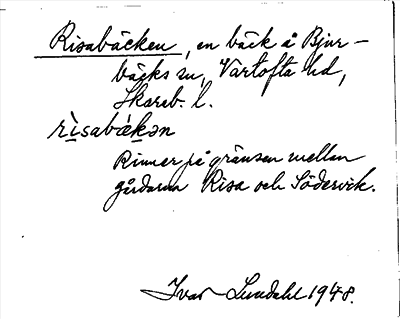 Risabäcken, en bäck å Bjur-
bäcks sn, Vartofta hd,
Skarab. l.
rìsabák̠ən
Rinner på gränsen mellan
gårdarna Risa och Södervik.
Ivar Lundahl 1948.